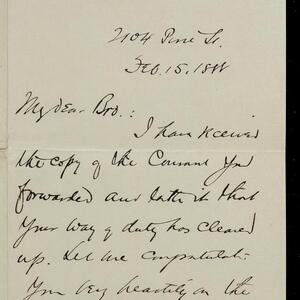 2104 Pine St.
Feb. 15, 1888
My dear Bro.:
I have received
the copy of the Courant you
forwarded and in it that
your way of duty has cleared
up. Let me congratulate
you very heartily on the